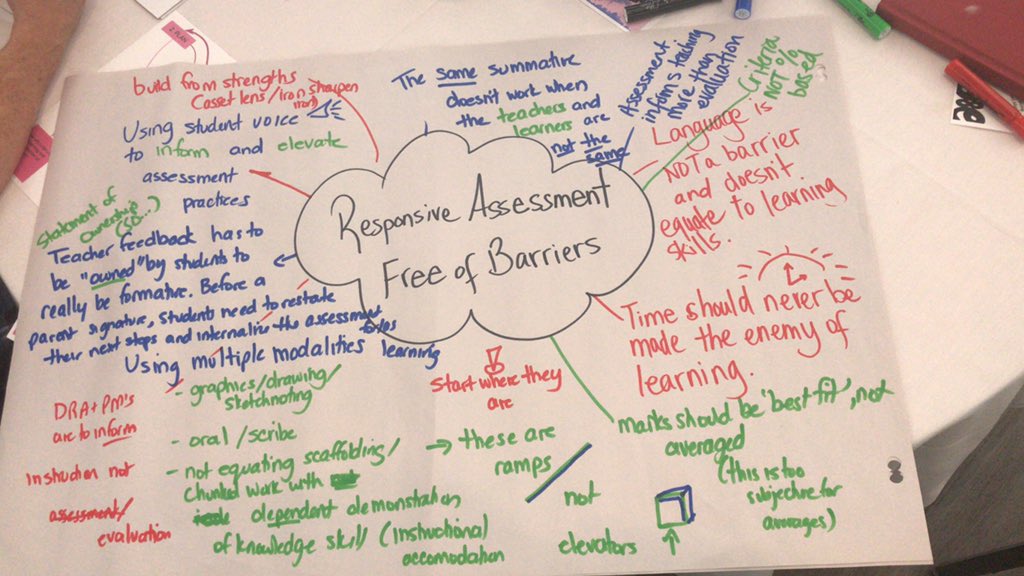 build from strengths
(asset lens/iron sharpen
iron)
Using student voice
to inform and elevate
assessment
practices
The same summative
doesn't work when
the teachers and
learners are
not the
same
Assessment
informs teaching
more than
evaluation
Criteria
NOT %
based
Language is
NOT a barrier
and doesn't
equate to learning
skills.
Responsive Assessment
Free of Barriers
Statement of
ownership
Teacher feedback has to
be "owned" by students to
really be formative. Before a
parent signature, students need to restate
their next steps and internalize the assessment
learning
Time should never be
made the enemy of
learning.
Using multiple modalities
- graphics/drawing/
sketchnoting
- oral/scribe
- not equating scaffolding/
chunked work with
dependent demonstation
of knowledge skill (Instructional
accomodation
→ these are
ramps
not
elevators
DRA + PM's
are to inform
Instruction not
assessment/
evaluation
Start where they
are
marks should be 'best fit', not
averaged
(this is too
subjective for
averages)
2 PLAN